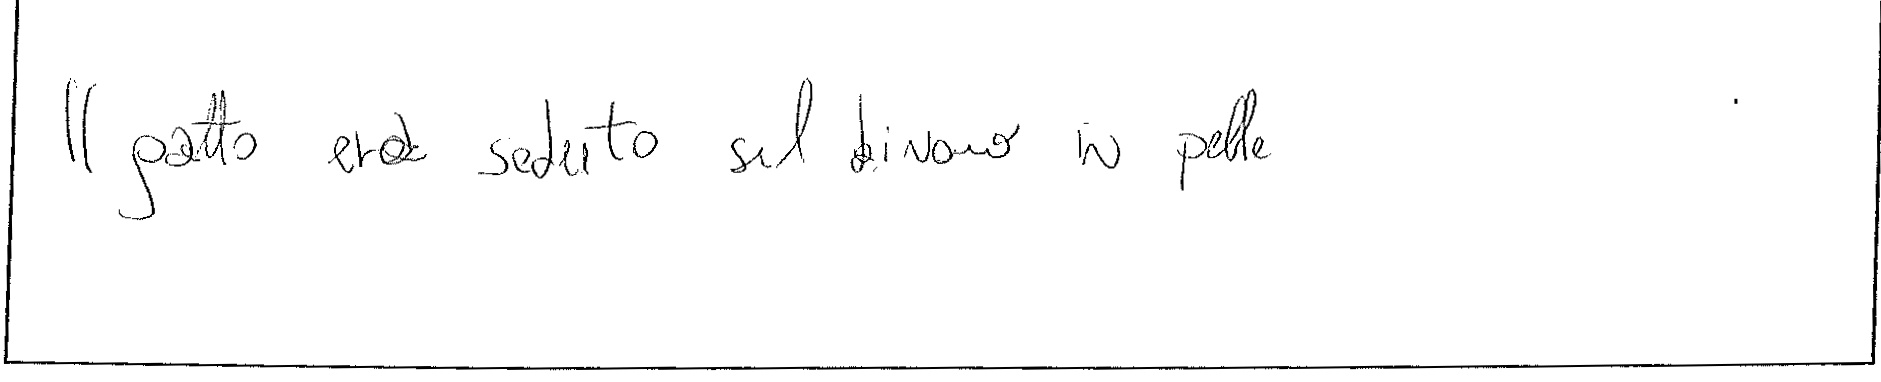 Il gatto era seduto sul divano in pelle